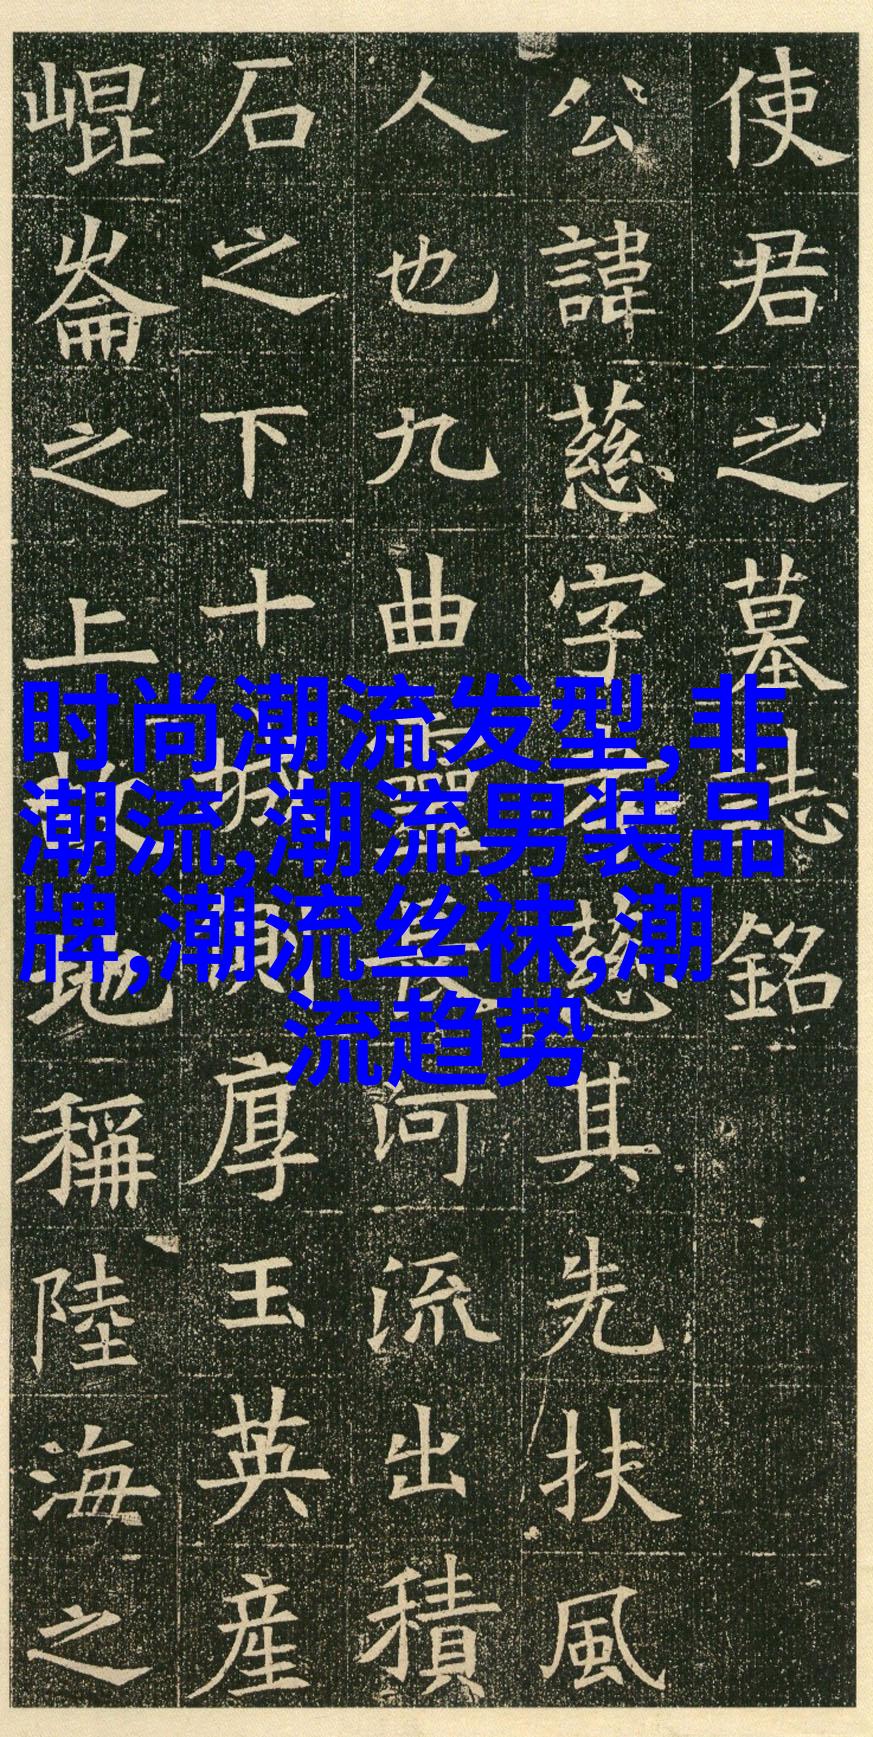 使君之墓誌銘
公諱慈字慈其先扶風
人也九曲靈長河流出積
石之下十城則厚玉英産
崐崙之上地稱陸海之
时尚潮流发型,非
潮流,潮流男装品
牌,潮流丝袜,潮
流趋势